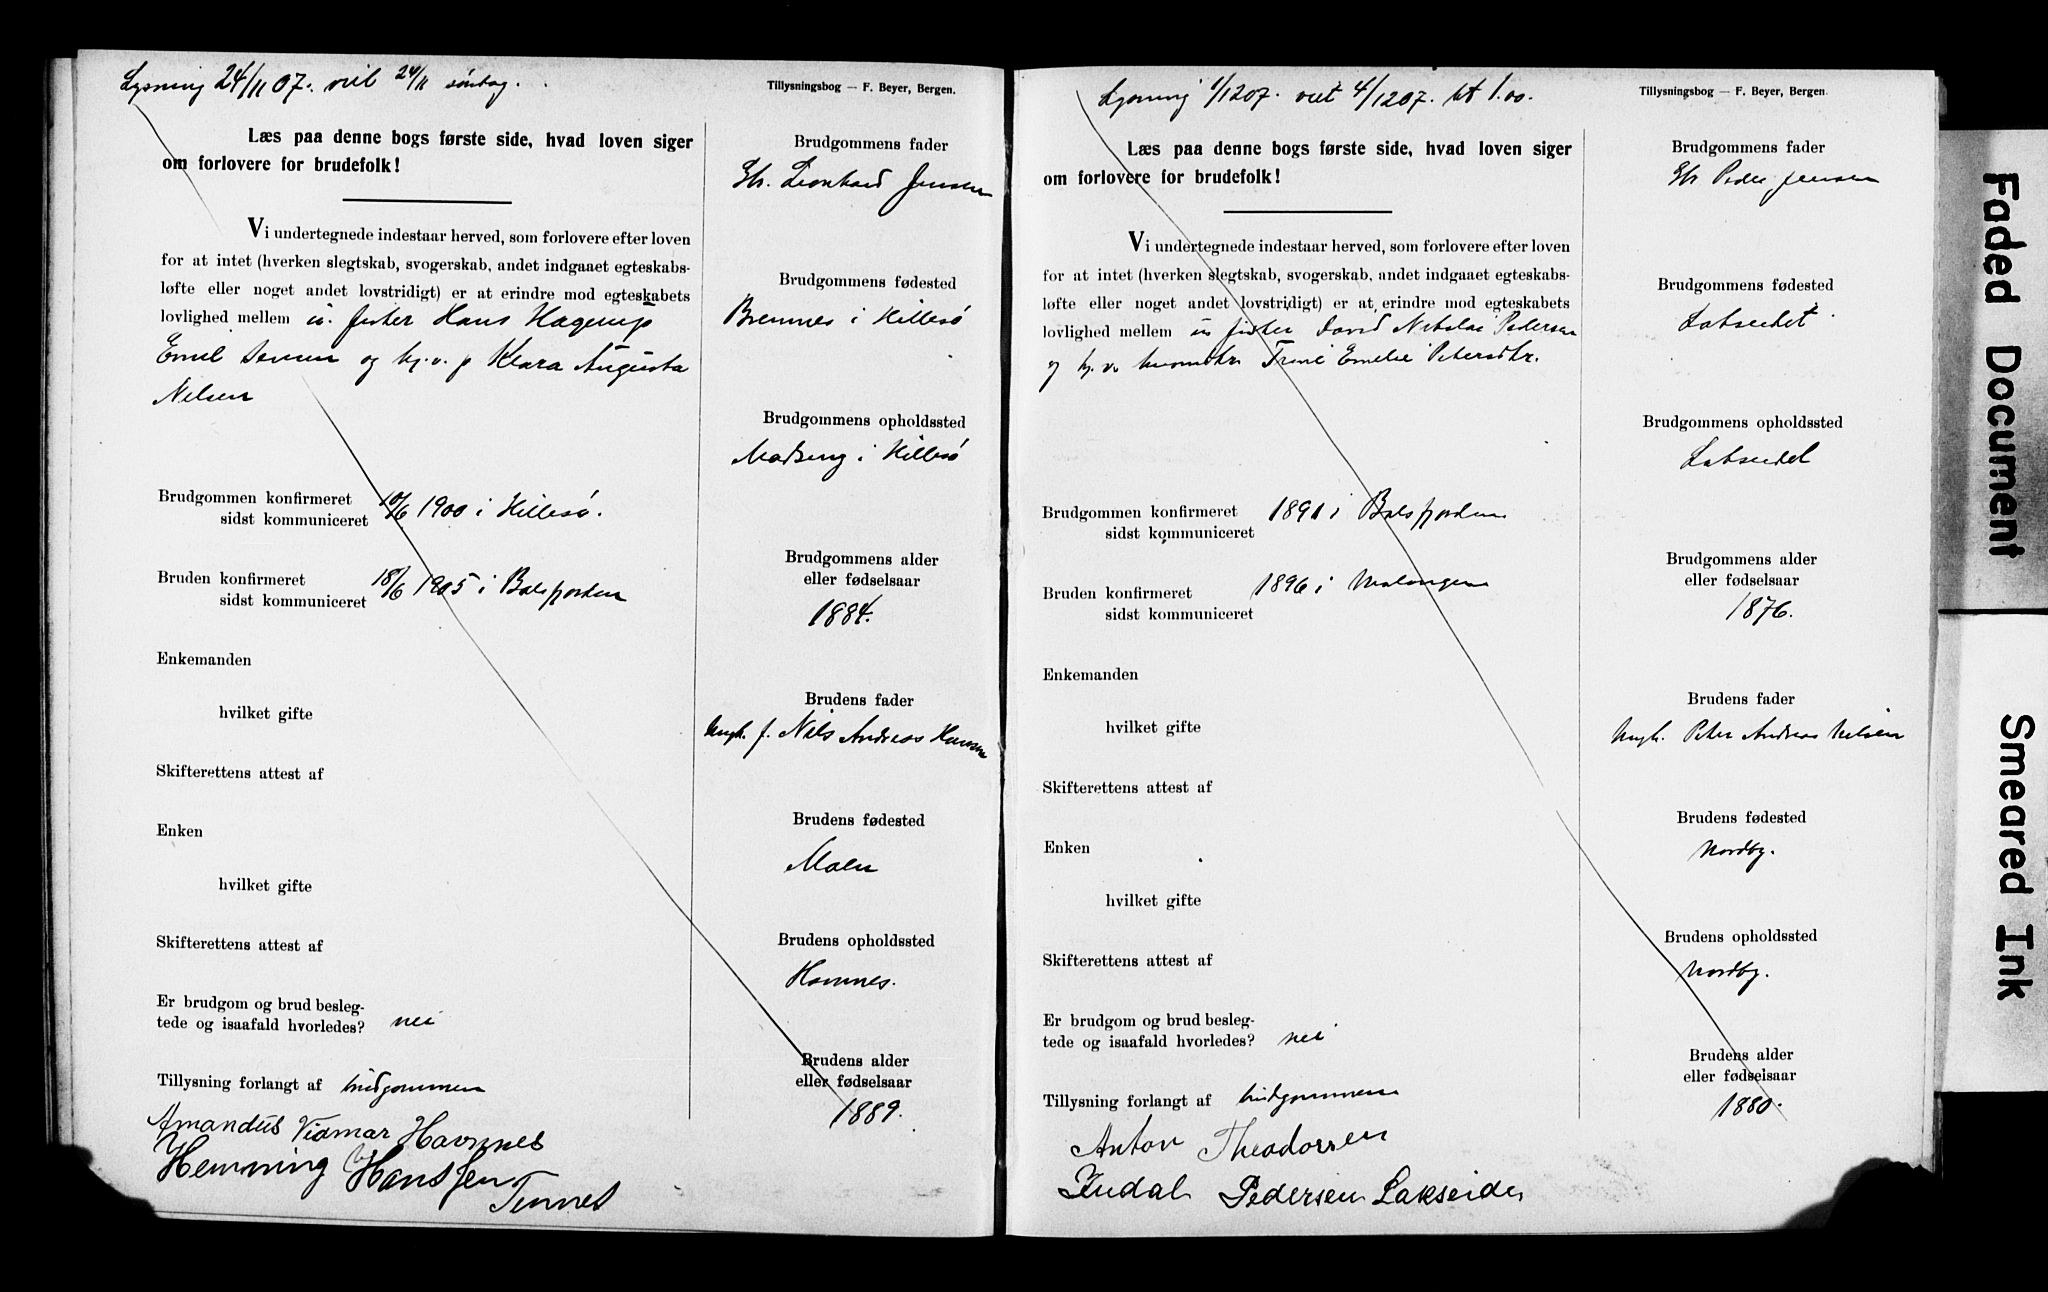 Lysning 24/11 07. viet 24/11 söndag.
Tillysningsbog — F. Beyer, Bergen.
Læs paa denne bogs første side, hvad loven siger
om forlovere for brudefolk!
Vi undertegnede indestaar herved, som forlovere efter loven
for at intet (hverken slegtskab, svogerskab, andet indgaaet egteskabs-
løfte eller noget andet lovstridigt) er at erindre mod egteskabets
lovlighed mellem u. fisker Hans Hagerup
Emil Jensen og hj.v. p Klara Augusta
Nilsen
Brudgommen konfirmeret 10/6 1900 i Hillesö.
sidst kommuniceret
Bruden konfirmeret 18/6 1905 i Balsfjorden
sidst kommuniceret
Enkemanden
hvilket gifte
Skifterettens attest af
Enken
hvilket gifte
Skifterettens attest af
Er brudgom og brud besleg-
tede og isaafald hvorledes? nei
Tillysning forlangt af brudgommen
Amandus Vidmar Havnnes
Hemming Hanssen
Tennes
Brudgommens fader
Gb. Leonhard Jensen
Brudgommens fødested
Brennes i Hillesö
Brudgommens opholdssted
Madseng i Hillesö
Brudgommens alder
eller fødselsaar
1884.
Brudens fader
Nils Andreas Hansen
Brudens fødested
Malen
Brudens opholdssted
Havnnes.
Brudens alder
eller fødselsaar
1889.
Lysning 1/12 07. viet 4/12 07. kl 1.00.
Tillysningsbog — F. Beyer, Bergen.
Læs paa denne bogs første side, hvad loven siger
om forlovere for brudefolk!
Vi undertegnede indestaar herved, som forlovere efter loven
for at intet (hverken slegtskab, svogerskab, andet indgaaet egteskabs-
løfte eller noget andet lovstridigt) er at erindre mod egteskabets
lovlighed mellem u. fisker David Nikolai Pedersen
og hj. v. Trine Emelie Petersdtr.
Brudgommen konfirmeret 1891 i Balsfjorden
sidst kommuniceret
Bruden konfirmeret 1896 i Malangen
sidst kommuniceret
Enkemanden
hvilket gifte
Skifterettens attest af
Enken
hvilket gifte
Skifterettens attest af
Er brudgom og brud besleg-
tede og isaafald hvorledes? nei
Tillysning forlangt af brudgommen
Anton Theodorsen
Indal Pedersen Lakseide
Brudgommens fader
Gb Peder Jensen
Brudgommens fødested
Lakseidet
Brudgommens opholdssted
Lakseidet
Brudgommens alder
eller fødselsaar
1876.
Brudens fader
Peter Andreas Nilsen
Brudens fødested
Nordby.
Brudens opholdssted
Nordby.
Brudens alder
eller fødselsaar
1880.
Faded Document
Smeared Ink